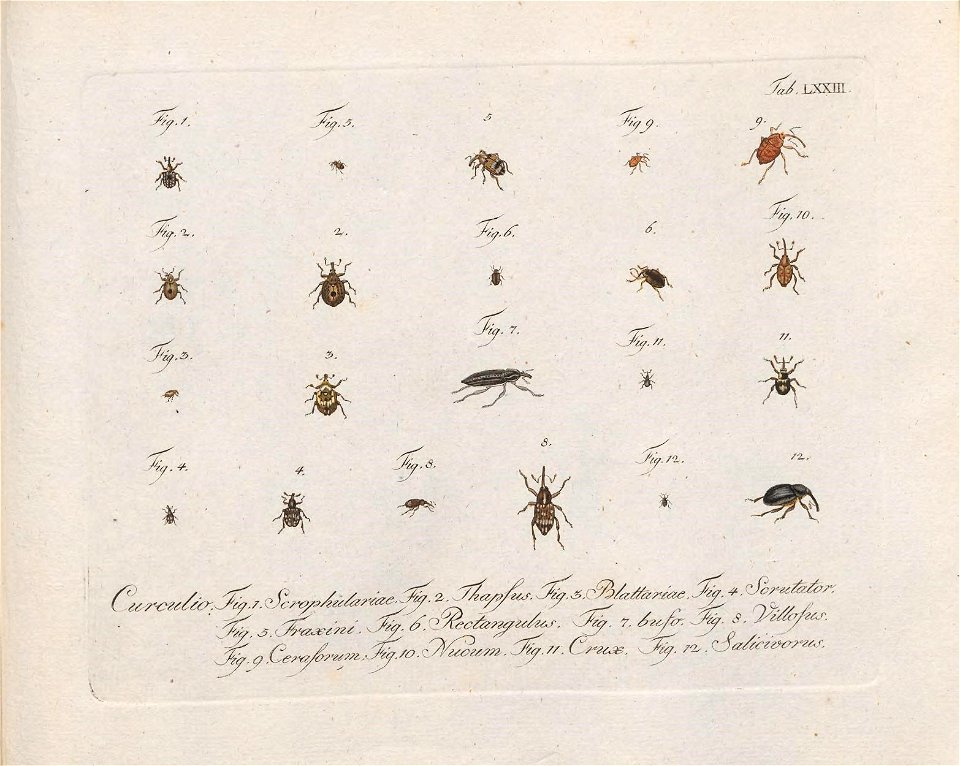 Tab. LXXIII.
Fig. 1.
Fig. 5.
5
Fig 9.
9.
Fig. 2.
2.
Fig. 6.
6.
Fig. 10.
Fig. 3.
3.
Fig. 7.
Fig. 11.
11.
Fig. 4.
4.
Fig. 8.
8.
Fig. 12.
12.
Curculio. Fig. 1. Scrophulariae. Fig. 2. Thapſus. Fig. 3. Blattariae. Fig. 4. Scrutator.
Fig. 5. Fraxini. Fig. 6. Rectangulus. Fig. 7. bufo. Fig. 8. Villoſus.
Fig. 9. Ceraſorum. Fig. 10. Nucum. Fig. 11. Crux. Fig. 12. Salicivorus.